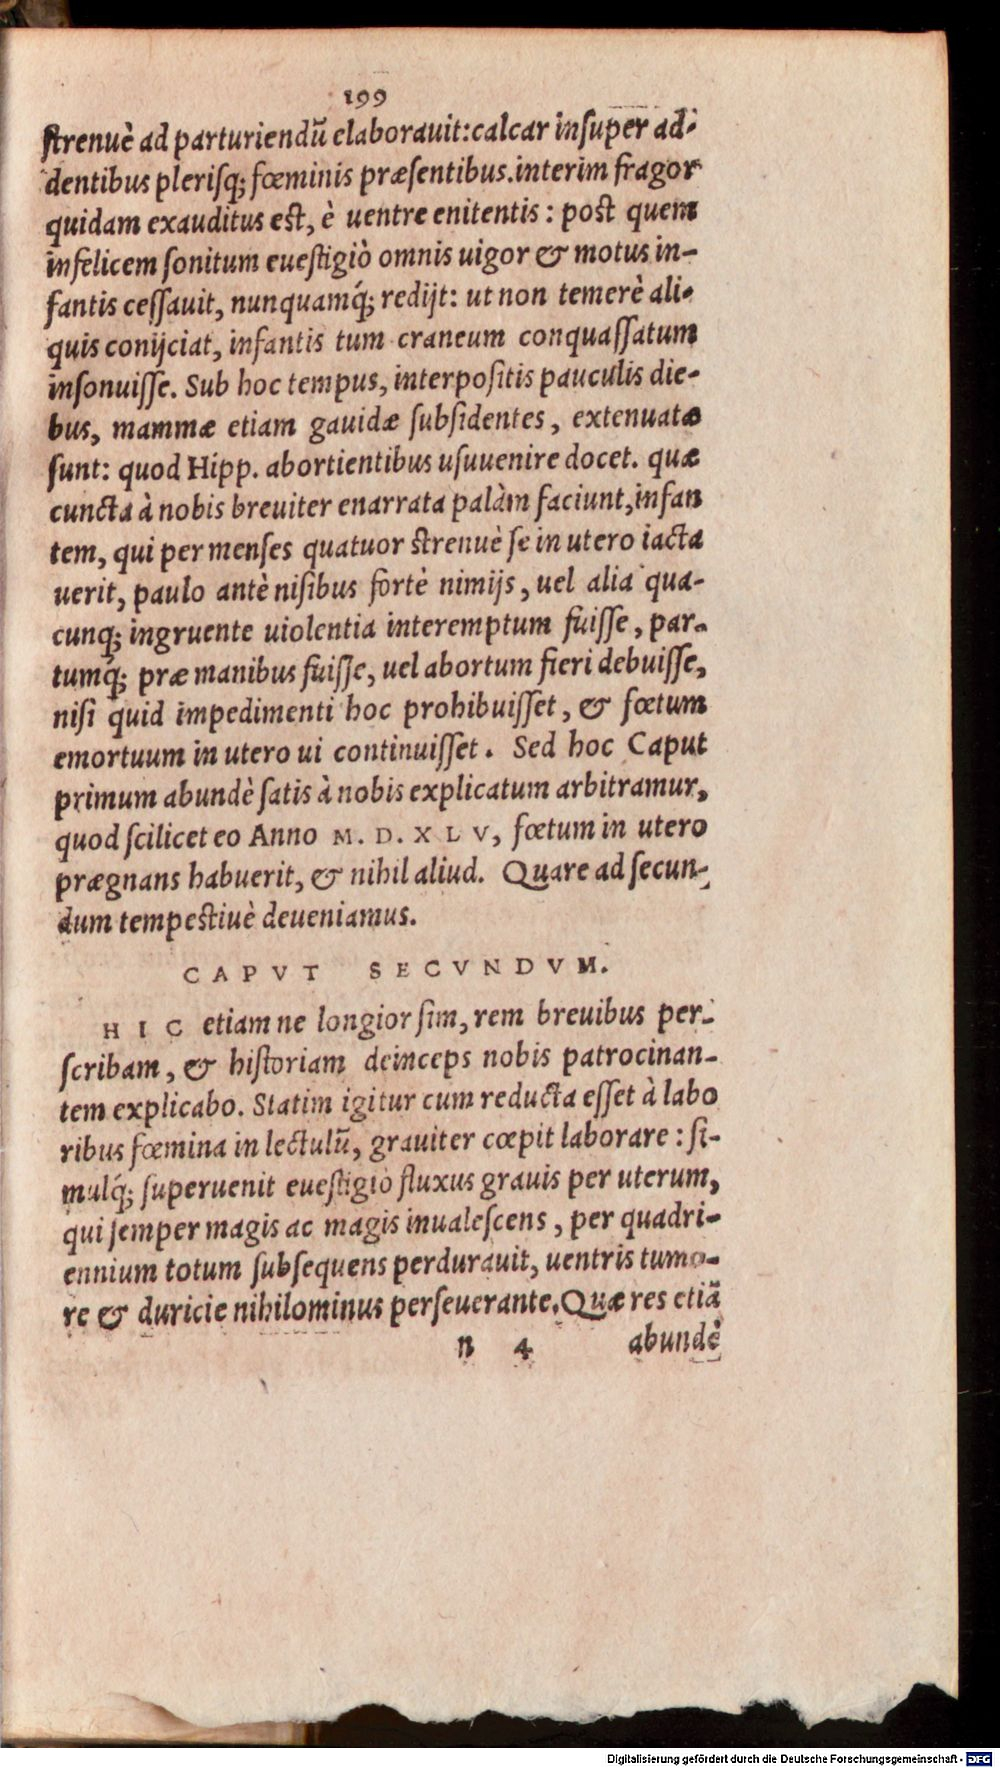 199
ſtrenuè ad parturiendũ elaborauit: calcar inſuper ad-
dentibus pleriſq; fœminis præſentibus. interim fragor
quidam exauditus est, è uentre enitentis: post quem
infelicem ſonitum eueſtigiò omnis uigor & motus in-
fantis ceſſauit, nunquamq́; redijt: ut non temerè ali-
quis conijciat, infantis tum craneum conquaſſatum
inſonuiſſe. Sub hoc tempus, interpoſitis pauculis die-
bus, mammæ etiam gauidæ ſubſidentes, extenuatæ
ſunt: quod Hipp. abortientibus uſuuenire docet. quæ
cuncta à nobis breuiter enarrata palàm faciunt, infan
tem, qui per menſes quatuor ſtrenuè ſe in utero iacta
uerit, paulo antè niſibus fortè nimijs, uel alia qua-
cunq; ingruente uiolentia interemptum fuiſſe, par-
tumq́; præ manibus fuiſſe, uel abortum fieri debuiſſe,
niſi quid impedimenti hoc prohibuiſſet, & fœtum
emortuum in utero ui continuiſſet. Sed hoc Caput
primum abundè ſatis à nobis explicatum arbitramur,
quod ſcilicet eo Anno M. D. X L V, fœtum in utero
prægnans habuerit, & nihil aliud. Quare ad ſecun-
dum tempeſtiuè deueniamus.
CAPVT SECVNDVM.
HIC etiam ne longior ſim, rem breuibus per-
ſcribam, & hiſtoriam deinceps nobis patrocinan-
tem explicabo. Statim igitur cum reducta eſſet à labo
ribus fœmina in lectulũ, grauiter cœpit laborare: ſi-
mulq́; ſuperuenit eueſtigiò fluxus grauis per uterum,
qui ſemper magis ac magis inualeſcens, per quadri-
ennium totum ſubſequens perdurauit, uentris tumo-
re & duricie nihilominus perſeuerante. Quæ res etiã
n 4 abundè
Digitalisierung gefördert durch die Deutsche Forschungsgemeinschaft - DFG